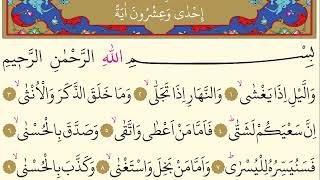 إِحْدٰى وَعِشْرُونَ اٰيَةً
بِسْمِ اللّٰهِ الرَّحْمٰنِ الرَّحِيمِ
وَالَّيْلِ اِذَا يَغْشٰىۙ ﴿١﴾ وَالنَّهَارِ اِذَا تَجَلّٰىۙ ﴿٢﴾ وَمَا خَلَقَ الذَّكَرَ وَالْاُنْثٰىۙ ﴿٣﴾
اِنَّ سَعْيَكُمْ لَشَتّٰىۜ ﴿٤﴾ فَاَمَّا مَنْ اَعْطٰى وَاتَّقٰىۙ ﴿٥﴾ وَصَدَّقَ بِالْحُسْنٰىۙ ﴿٦﴾
فَسَنُيَسِّرُهُ لِلْيُسْرٰىۜ ﴿٧﴾ وَاَمَّا مَنْ بَخِلَ وَاسْتَغْنٰىۙ ﴿٨﴾ وَكَذَّبَ بِالْحُسْنٰىۙ ﴿٩﴾